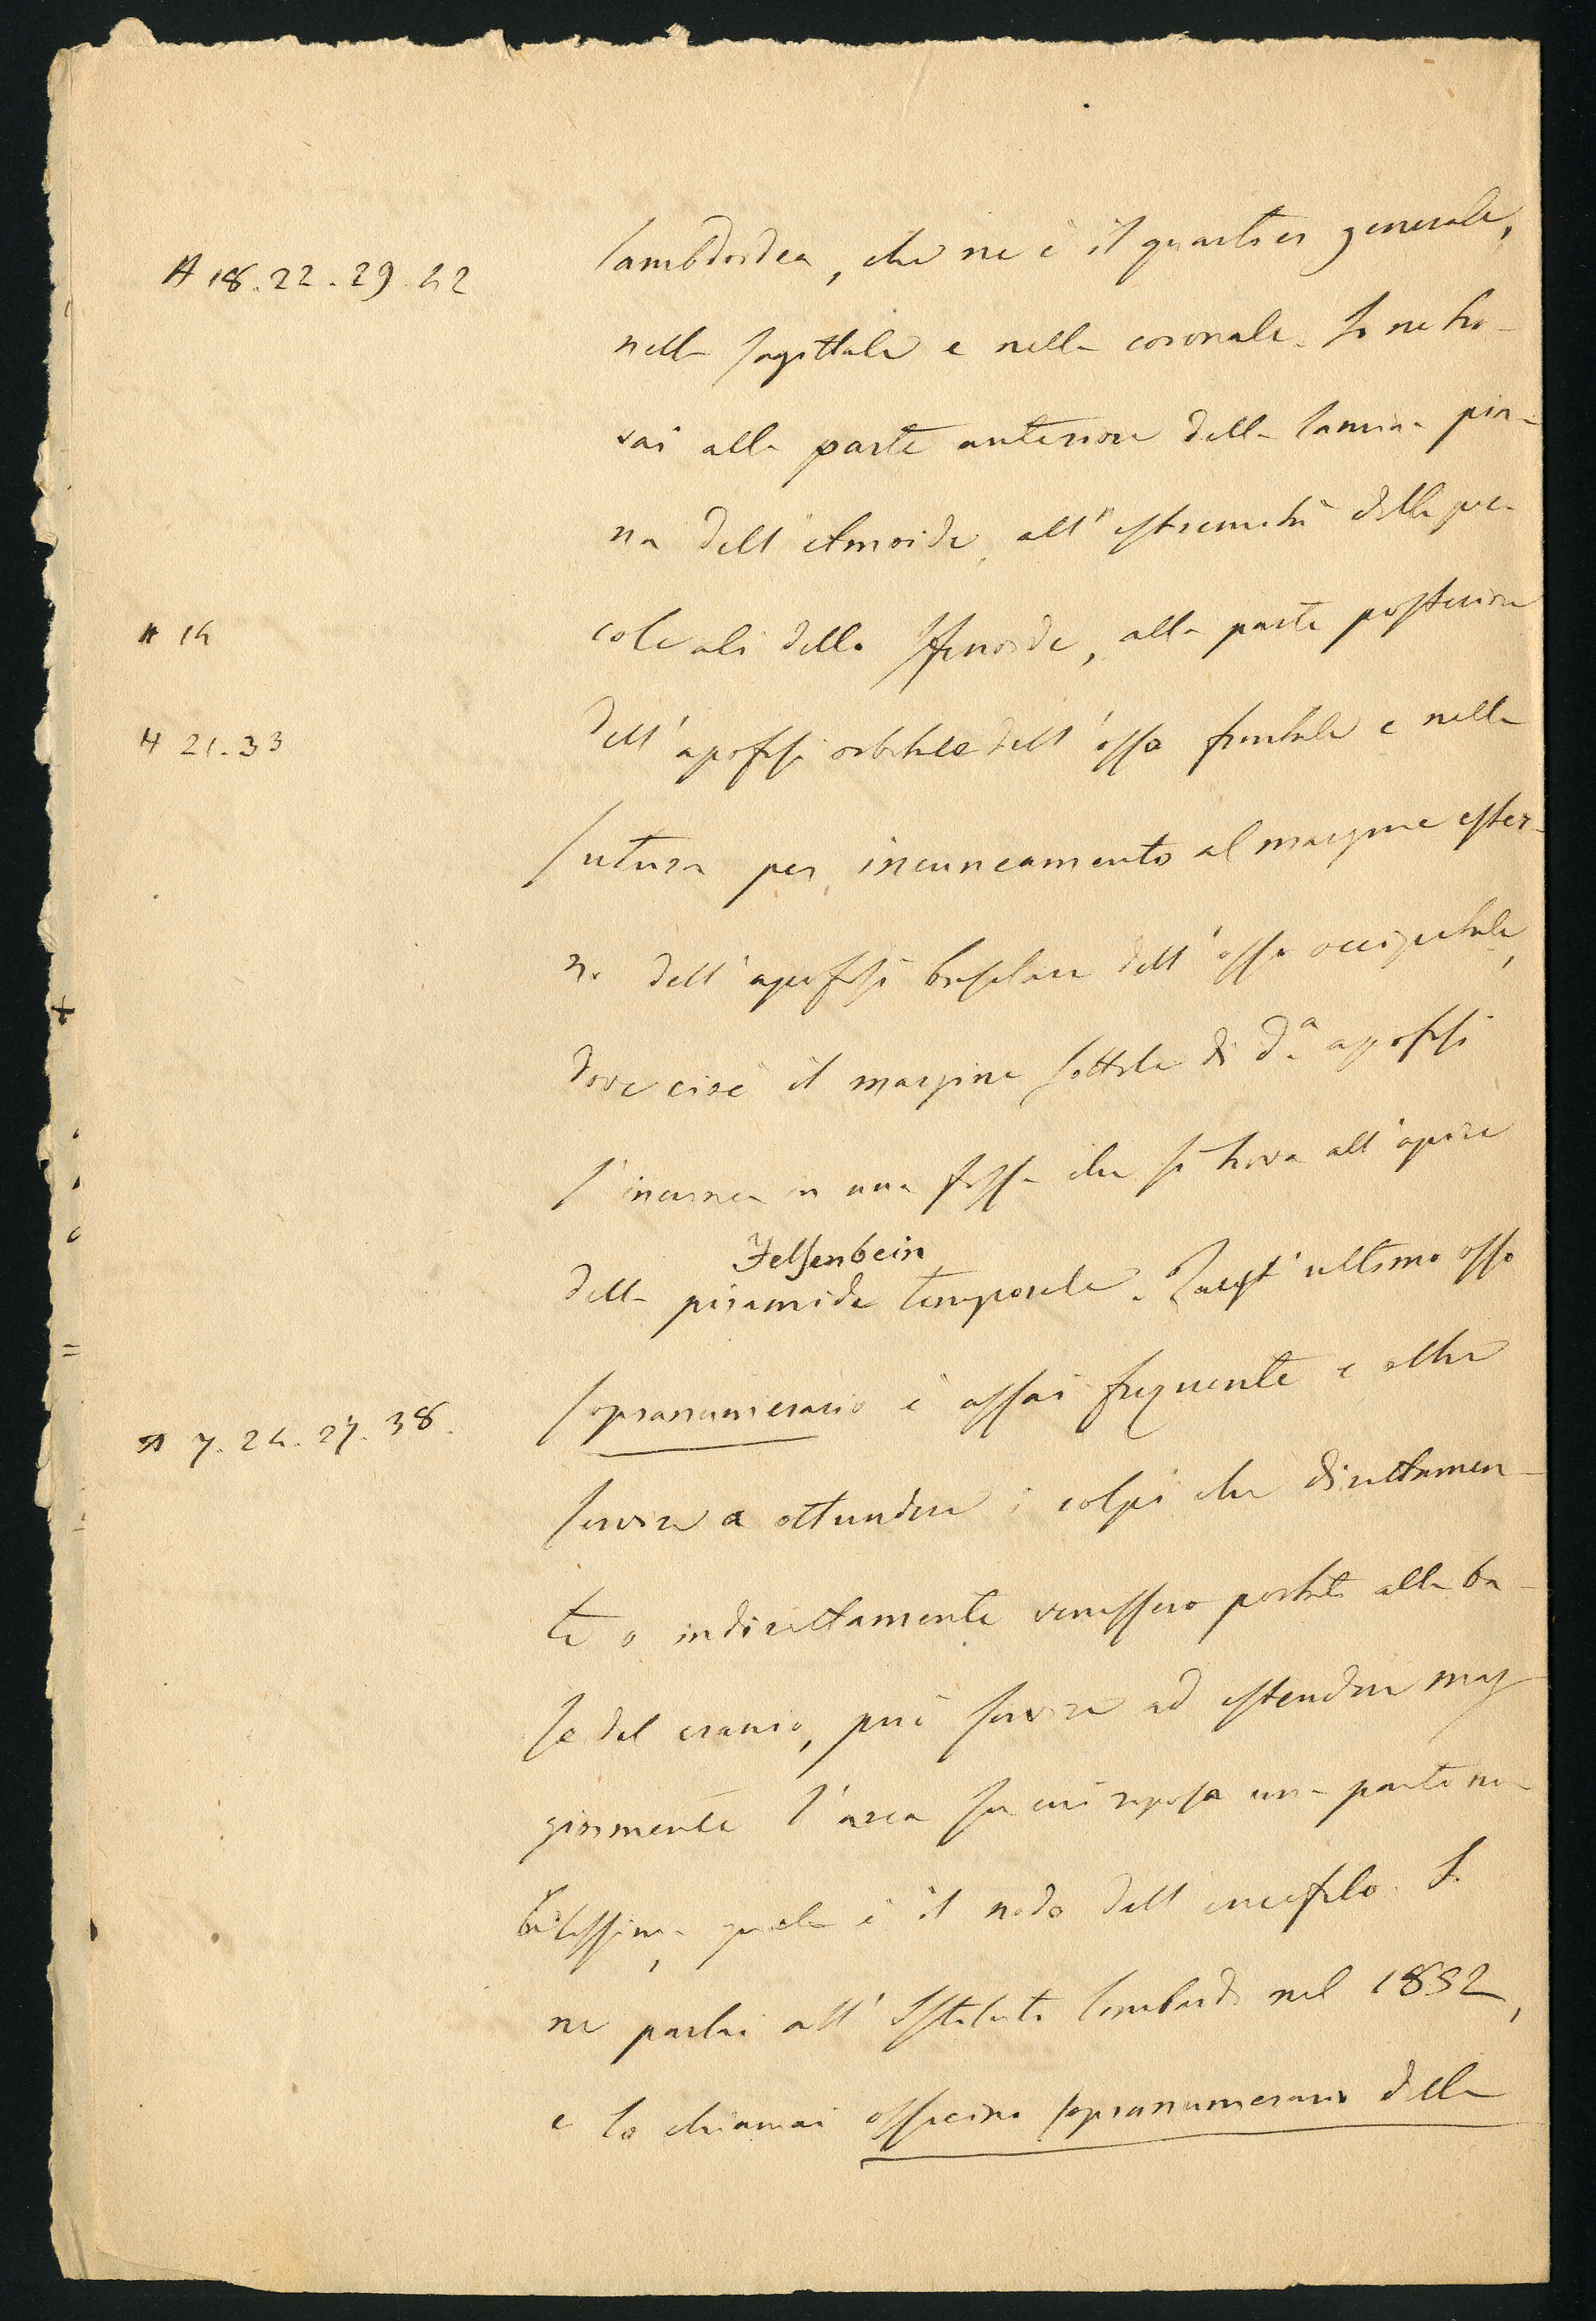 A 18. 22. 29. 42
lambdoidea, che ne è il quartier generale,
nella sagittale e nella coronale. Io ne tro-
vai alla parte anteriore della lamina pia-
na dell'etmoide, all'estremità delle pic-
A 14
cole ali dello sfenoide, alla parte posteriore
A 21. 33
dell'apofisi orbitale dell'osso frontale e nella
sutura per incuneamento al margine ester-
no dell'apofisi basilare dell'osso occipitale,
dove cioè il margine sottile di d.a apofisi
s'incunea in una fossa che si trova all'apice
Felsenbein
della piramide temporale. Quest'ultimo osso
A 7. 24. 27. 38.
sopranumerario è assai frequente e oltre
servire a ottundere i colpi che direttamen-
te o indirettamente venissero portati alla ba-
se del cranio, può servire ad estendere mag-
giormente l'area su cui riposa una parte no-
bilissima, quale è il nodo dell'encefalo. Io
ne parlai all'Istituto lombardo nel 1852,
e lo chiamai ossicino sopranumerario della